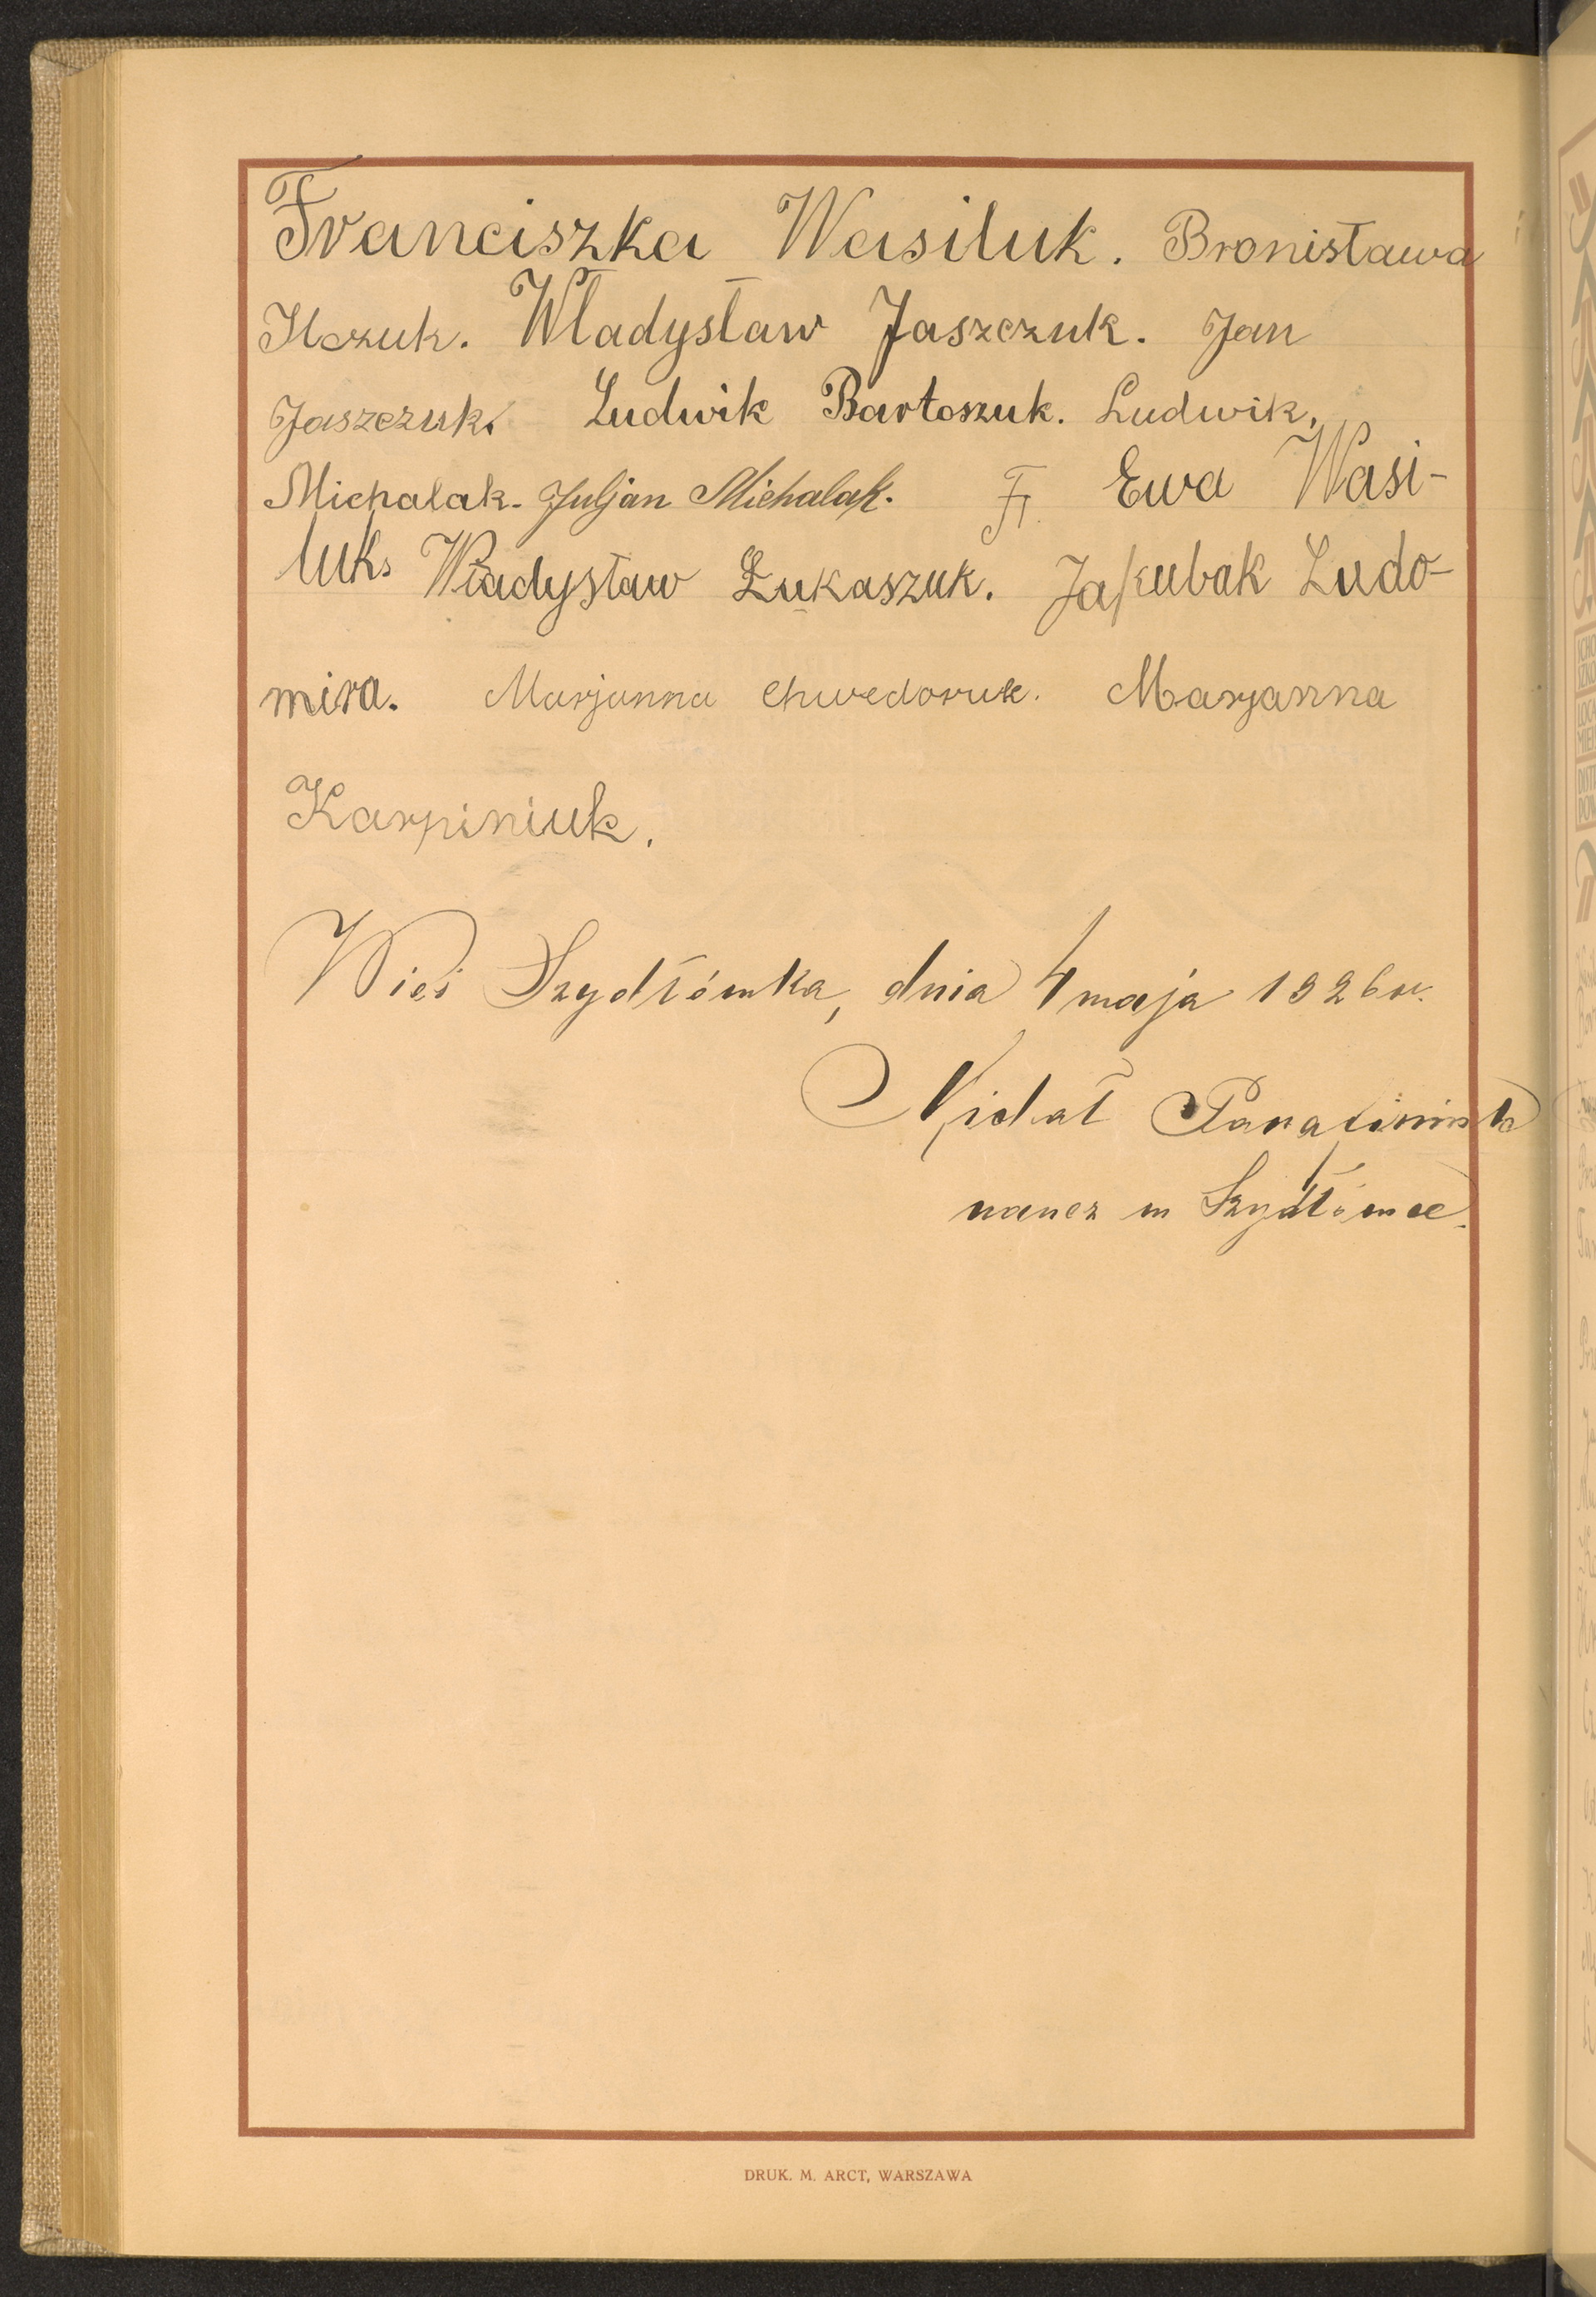 Franciszka Wasiluk. Bronisława
Ilczuk. Władysław Jaszczuk. Jan
Jaszczuk. Ludwik Bartoszuk. Ludwik.
Michalak. Juljan Michalak. Fr. Ewa Wasi-
luk. Władysław Łukaszuk. Jakubak Ludo-
mira. Marjanna Chwedoruk. Marjanna
Karpiniuk.
Wieś Szydłówka, dnia 4 maja 1926 r.
Michał
naucz w Szydłówce.
DRUK. M. ARCT, WARSZAWA